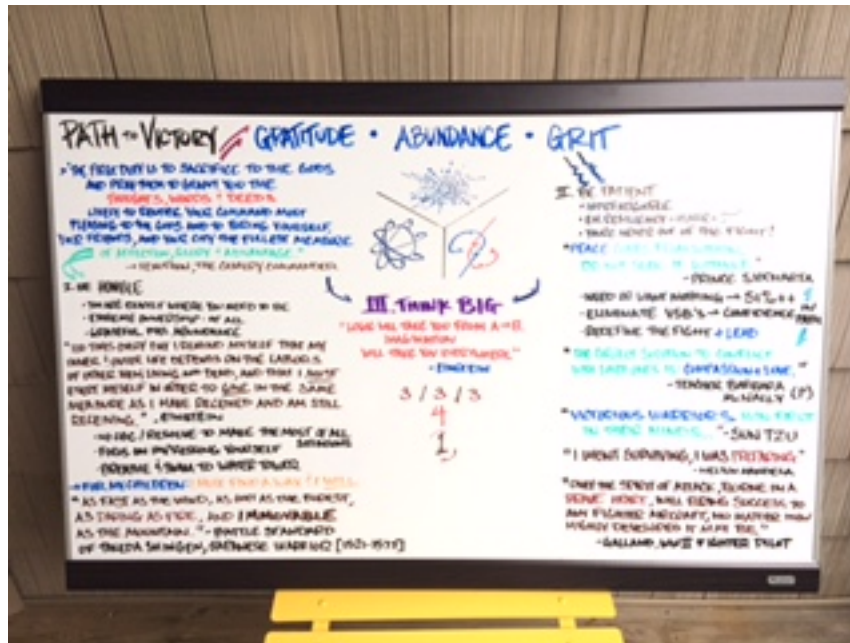 PATH to VICTORY // GRATITUDE • ABUNDANCE • GRIT
"THE FIRST DUTY IS TO SACRIFICE TO THE GODS
AND PRAY THEM TO GRANT YOU THE
THOUGHTS, WORDS & DEEDS
LIKELY TO RENDER YOUR COMMAND MOST
PLEASING TO THE GODS AND TO BRING YOURSELF,
YOUR FRIENDS, AND YOUR CITY THE FULLEST MEASURE
OF AFFECTION, GLORY & ADVANTAGE."
THE CAVALRY COMMANDER
I. BE HUMBLE
EXACTLY WHERE YOU NEED TO BE
- EXTREME OWNERSHIP OF ALL
- GRATEFUL FOR ABUNDANCE
EVERY DAY I REMIND MYSELF THAT MY
INNER & OUTER LIFE DEPENDS ON THE LABORS
OF OTHER MEN LIVING AND DEAD, AND THAT I MUST
EXERT MYSELF IN ORDER TO GIVE IN THE SAME
MEASURE AS I HAVE RECEIVED AND AM STILL
RECEIVING.", EINSTEIN
TO MAKE THE MOST OF ALL
- FOCUS ON YOURSELF
- BREATHE & TO WATER TOWER
FOR MY CHILDREN: MUST FIND A WAY & I WILL
"AS FAST AS THE WIND, AS THE FOREST,
AS DARING AS FIRE, AND IMMOVABLE
AS THE MOUNTAIN." - BATTLE STANDARD
OF TAKEDA SHINGEN, JAPANESE WARRIOR [1521-1573]
III. THINK BIG
"LOGIC WILL TAKE YOU FROM A → B.
IMAGINATION
WILL TAKE YOU EVERYWHERE."
- EINSTEIN
3 / 3 / 3
4
1
II. BE PATIENT
- YOU'RE NEVER OUT OF THE FIGHT!
"PEACE COMES FROM WITHIN.
DO NOT SEEK IT WITHOUT."
- PRINCE
- NEED VS WANT
- ELIMINATE → CONFIDENCE
- REDEFINE THE FIGHT + LEAD
SOLUTION TO CONFLICT
IS COMPASSION & LOVE."
- TEACHER BARBARA
McNALLY (P)
"VICTORIOUS WARRIORS WIN FIRST
IN THEIR MINDS..." - SUN TZU
"I WASN'T SURVIVING, I WAS PREPARING"
"ONLY THE SPIRIT OF ATTACK, BORNE IN A
BRAVE HEART, WILL BRING SUCCESS TO
ANY FIGHTER AIRCRAFT, NO MATTER HOW
HIGHLY DEVELOPED IT MAY BE."
- GALLAND, WWII FIGHTER PILOT